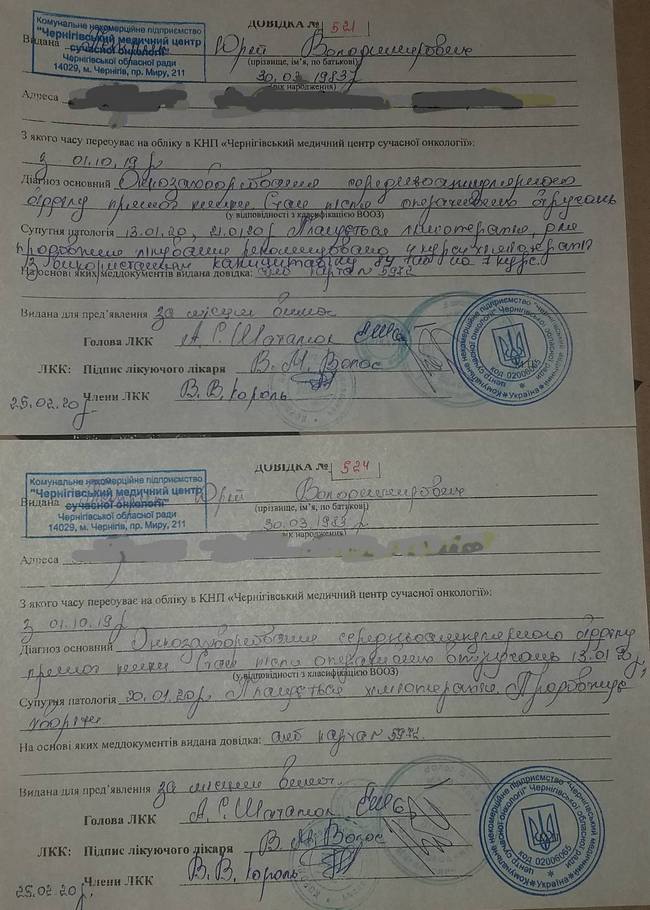 ДОВІДКА № 521
Комунальне некомерційне підприємство
"Чернігівський медичний центр
сучасної онкології"
Чернігівської обласної ради
14029, м. Чернігів, пр. Миру, 211
Видана Юрій Володимирович
(прізвище, ім'я, по батькові)
30.03.1983
(рік народження)
Адреса
З якого часу перебуває на обліку в КНП «Чернігівський медичний центр сучасної онкології»:
з 01.10.19р
Діагноз основний Онкозахворювання середньоампулярного
відділу прямої кишки. Стан після оперативних втручань
(у відповідності з класифікацією ВООЗ)
Супутня патологія 13.01.20, 21.01.20р Планується хіміотерапія, для
продовження лікування рекомендовано 4 курси хіміотерапії
З використанням на 1 курс.
На основі яких меддокументів видана довідка: амб карта № 5972
Видана для пред'явлення за місцем вимог
Голова ЛКК А. Є. Шаталюк
ЛКК: Підпис лікуючого лікаря В. М. Волос
Члени ЛКК В. В. Король
25.02.20р.
Комунальне некомерційне підприємство "Чернігівський медичний центр сучасної онкології" Чернігівської обласної ради
код 02006065
Україна
ДОВІДКА № 524
Комунальне некомерційне підприємство
"Чернігівський медичний центр
сучасної онкології"
Чернігівської обласної ради
14029, м. Чернігів, пр. Миру, 211
Видана Юрій Володимирович
(прізвище, ім'я, по батькові)
30.03.1983р
(рік народження)
Адреса
З якого часу перебуває на обліку в КНП «Чернігівський медичний центр сучасної онкології»:
з 01.10.19р
Діагноз основний Онкозахворювання середньоампулярного відділу
прямої кишки Стан після оперативного втручань 13.01.20р,
(у відповідності з класифікацією ВООЗ)
Супутня патологія 20.01.20р Планується хіміотерапія. Продовжує
хворіти
На основі яких меддокументів видана довідка: амб карта 5972.
Видана для пред'явлення за місцем вимог.
Голова ЛКК А. Є. Шаталюк
ЛКК: Підпис лікуючого лікаря В. М. Волос
Члени ЛКК В. В. Король
25.02.20р.
Комунальне некомерційне підприємство "Чернігівський медичний центр сучасної онкології" Чернігівської обласної ради
код 02006065
Україна